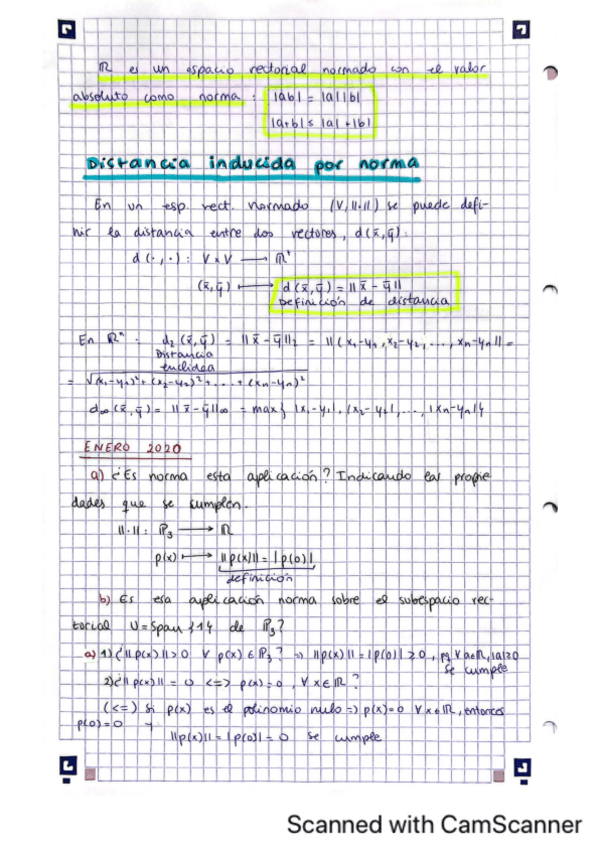 ℝ es un espacio vectorial normado con el valor
absoluto como norma : |ab| = |a||b|
|a+b| ≤ |a| + |b|
Distancia inducida por norma
En un esp. vect. normado (V, ||·||) se puede defi-
nir la distancia entre dos vectores, d(x̄,ȳ):
d(·,·): V×V → ℝ⁺
(x̄,ȳ) ↦ d(x̄,ȳ) = ||x̄ - ȳ||
Definición de distancia
En ℝⁿ : d₂(x̄,ȳ) = ||x̄ - ȳ||₂ = ||(x₁-y₁, x₂-y₂, ..., xn-yn|| =
Distancia
euclídea
= √(x₁-y₁)² + (x₂-y₂)² + ... + (xn-yn)²
d∞(x̄,ȳ) = ||x̄ - ȳ||∞ = max{ |x₁-y₁|, |x₂-y₂|, ..., |xn-yn|}
ENERO 2020
a) ¿Es norma esta aplicación? Indicando las propie
dades que se cumplen.
||·||: ℙ₃ → ℝ
p(x) ↦ ||p(x)|| = |p(0)|
definición
b) Es esa aplicación norma sobre el subespacio vec-
torial U = Span{1} de ℙ₃?
a) 1) ¿||p(x)|| ≥ 0 ∀ p(x) ∈ ℙ₃? ⇒ ||p(x)|| = |p(0)| ≥ 0, pq ∀ a∈ℝ, |a|≥0
se cumple
2) ¿||p(x)|| = 0 <=> p(x) = 0, ∀ x∈ℝ?
(<=) Si p(x) es el polinomio nulo => p(x)=0 ∀ x∈ℝ, entonces
p(0)=0 y
||p(x)|| = |p(0)| = 0 se cumple
Scanned with CamScanner